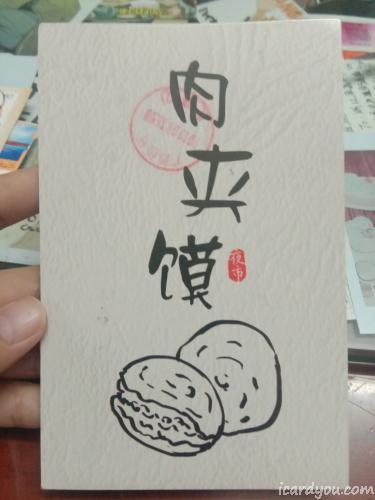 肉夹馍
夜市
icardyou.com